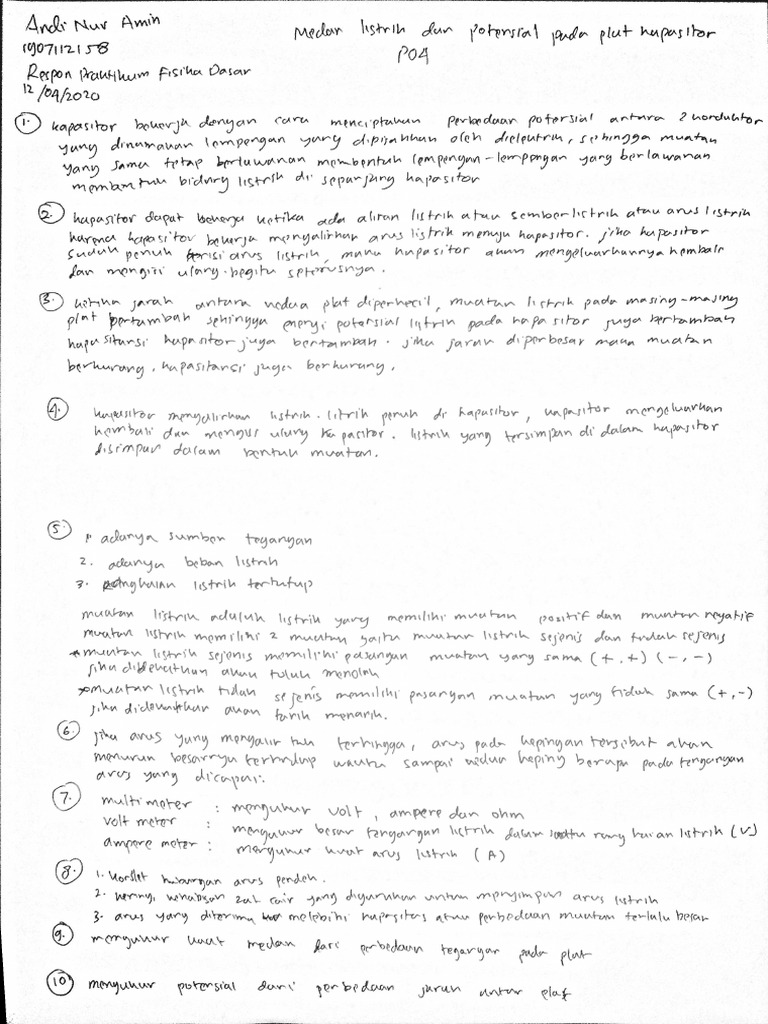 Andi Nur Amin
1907112158
Respon Praktikum Fisika Dasar
12/04/2020
Medan listrik dan potensial pada plat kapasitor
P04
1. kapasitor bekerja dengan cara menciptakan perbedaan potensial antara 2 konduktor
yang dinamakan lempengan yang dipisahkan oleh dielektrik, sehingga muatan
yang sama tetap berlawanan membentuk lempengan-lempengan yang berlawanan
membentuk bidang listrik di sepanjang kapasitor
2. kapasitor dapat bekerja ketika ada aliran listrik atau sember listrik atau arus listrik
karena kapasitor bekerja mengalirkan arus listrik menuju kapasitor. jika kapasitor
sudah penuh berisi arus listrik, maka kapasitor akan mengeluarkannya kembali
dan mengisi ulang. begitu seterusnya.
3. ketika jarak antara kedua plat diperkecil, muatan listrik pada masing-masing
plat bertambah sehingga energi potensial listrik pada kapasitor juga bertambah
kapasitansi kapasitor juga bertambah. jika jarak diperbesar maka muatan
berkurang, kapasitansi juga berkurang.
4. kapasitor mengalirkan listrik. listrik penuh di kapasitor, kapasitor mengeluarkan
kembali dan mengisi ulang kapasitor. listrik yang tersimpan di dalam kapasitor
disimpan dalam bentuk muatan.
5. 1. adanya sumber tegangan
2. adanya beban listrik
3. rangkaian listrik tertutup
muatan listrik adalah listrik yang memiliki muatan positif dan muatan negatif
muatan listrik memiliki 2 muatan yaitu muatan listrik sejenis dan tidak sejenis
*muatan listrik sejenis memiliki pasangan muatan yang sama (+,+) (-,-)
jika didekatkan akan tolak menolak
*muatan listrik tidak sejenis memiliki pasangan muatan yang tidak sama (+,-)
jika didekatkan akan tarik menarik.
6. jika arus yang mengalir tak terhingga, arus pada kepingan tersebut akan
menurun besarnya terhadap waktu sampai kedua keping berapa pada tegangan
arus yang dicapai.
7. multimeter : mengukur volt, ampere dan ohm
volt meter : mengukur besar tegangan listrik dalam suatu rangkaian listrik (V)
ampere meter : mengukur kuat arus listrik (A)
8. 1. korslet hubungan arus pendek.
2. kering, kehabisan zat cair yang digunakan untuk menyimpan arus listrik
3. arus yang diterima melebihi kapasitas atau perbedaan muatan terlalu besar
9. mengukur kuat medan dari perbedaan tegangan pada plat
10. mengukur potensial dari perbedaan jarak antar plat